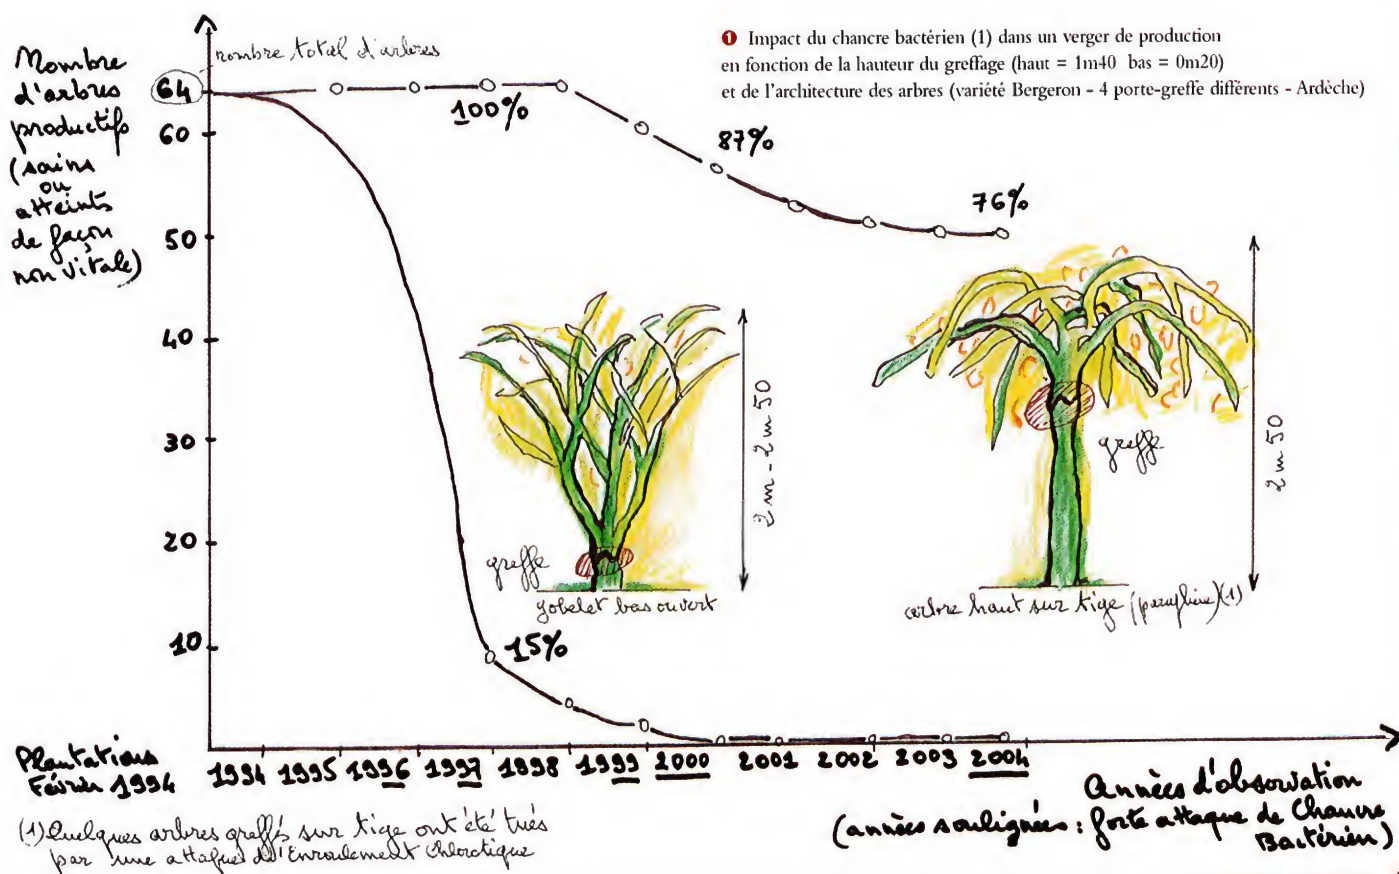 ❶ Impact du chancre bactérien (1) dans un verger de production
en fonction de la hauteur du greffage (haut = 1m40 bas = 0m20)
et de l'architecture des arbres (variété Bergeron - 4 porte-greffe différents - Ardèche)
Nombre
d'arbres
productifs
(sains
ou
atteints
de façon
non vitale)
nombre total d'arbres
64
60
50
40
30
20
10
100%
87%
76%
15%
greffe
gobelet bas ouvert
2m - 2m50
greffe
arbre haut sur tige (parapluie)(1)
2m50
Plantations
Février 1994
1994 1995 1996 1997 1998 1999 2000 2001 2002 2003 2004
Années d'observation
(années soulignées : forte attaque de Chancre
Bactérien)
(1) Quelques arbres greffés sur tige ont été tués
par une attaque d'Enroulement Chlorotique